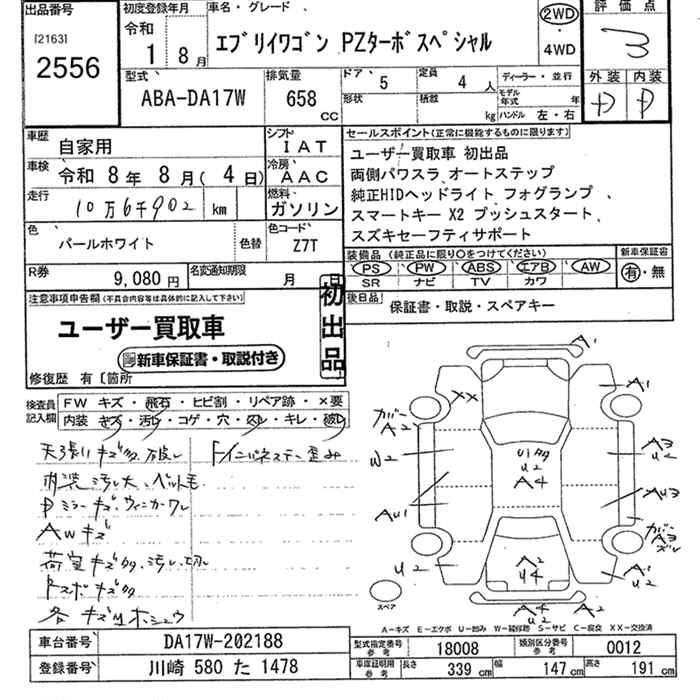 出品番号
[2163]
2556
初度登録年月
令和
1 8月
車名・グレード
エブリイワゴン PZターボスペシャル
2WD
・
4WD
評価点
3
型式
ABA-DA17W
排気量
658
CC
ドア
5
定員
4 人
形状
積載
kg
ディーラー・並行
モデル年式
年
ハンドル 左・右
外装
内装
D D
車歴
自家用
シフト
IAT
車検
令和 8年 8月( 4日)
冷房
AAC
走行
10万6千902 km
燃料
ガソリン
色
パールホワイト
色替
色コード
Z7T
セールスポイント(正常に機能するものに限ります)
ユーザー買取車 初出品
両側パワスラ オートステップ
純正HIDヘッドライト フォグランプ
スマートキー X2 プッシュスタート
スズキセーフティサポート
装備品 (純正品に限り○をつけてください)
PS ・ PW ・ ABS ・ エアB ・ AW
SR ナビ TV カワ
新車保証書
有・無
R券
9,080円
名変通知期限
月 日
後日品
保証書・取説・スペアキー
注意事項申告欄(不具合内容等は具体的に記入して下さい)
ユーザー買取車
新車保証書・取説付き
初出品
修復歴 有〔箇所
検査員記入欄
FW キズ・飛石・ヒビ割・リペア跡・×要
内装 キズ・汚レ・コゲ・穴・凹・キレ・破レ
天張りキズ多、破レ
内装汚レ大、ペット毛
Dミラーキズ、ウィンカーワレ
AWキズ
荷室キズ多、汚レ、切レ
各キズ凹ホシュウ
A1
XX
A1
カバー
A2
W2
U1多
U2
A4
A3
U2
AU1
AU3
カバー
A3
ズレ
U2
A2
U4
A1
U2
A4
U2
A2
スペア
A-キズ E-エクボ U-凹み W-補修跡 S-サビ C-腐食 XX-交換済
車台番号
DA17W-202188
登録番号
川崎 580 た 1478
型式指定番号 参考
18008
類別区分番号 参考
0012
車庫証明用 参考
長さ 339 cm
幅 147 cm
高さ 191 cm